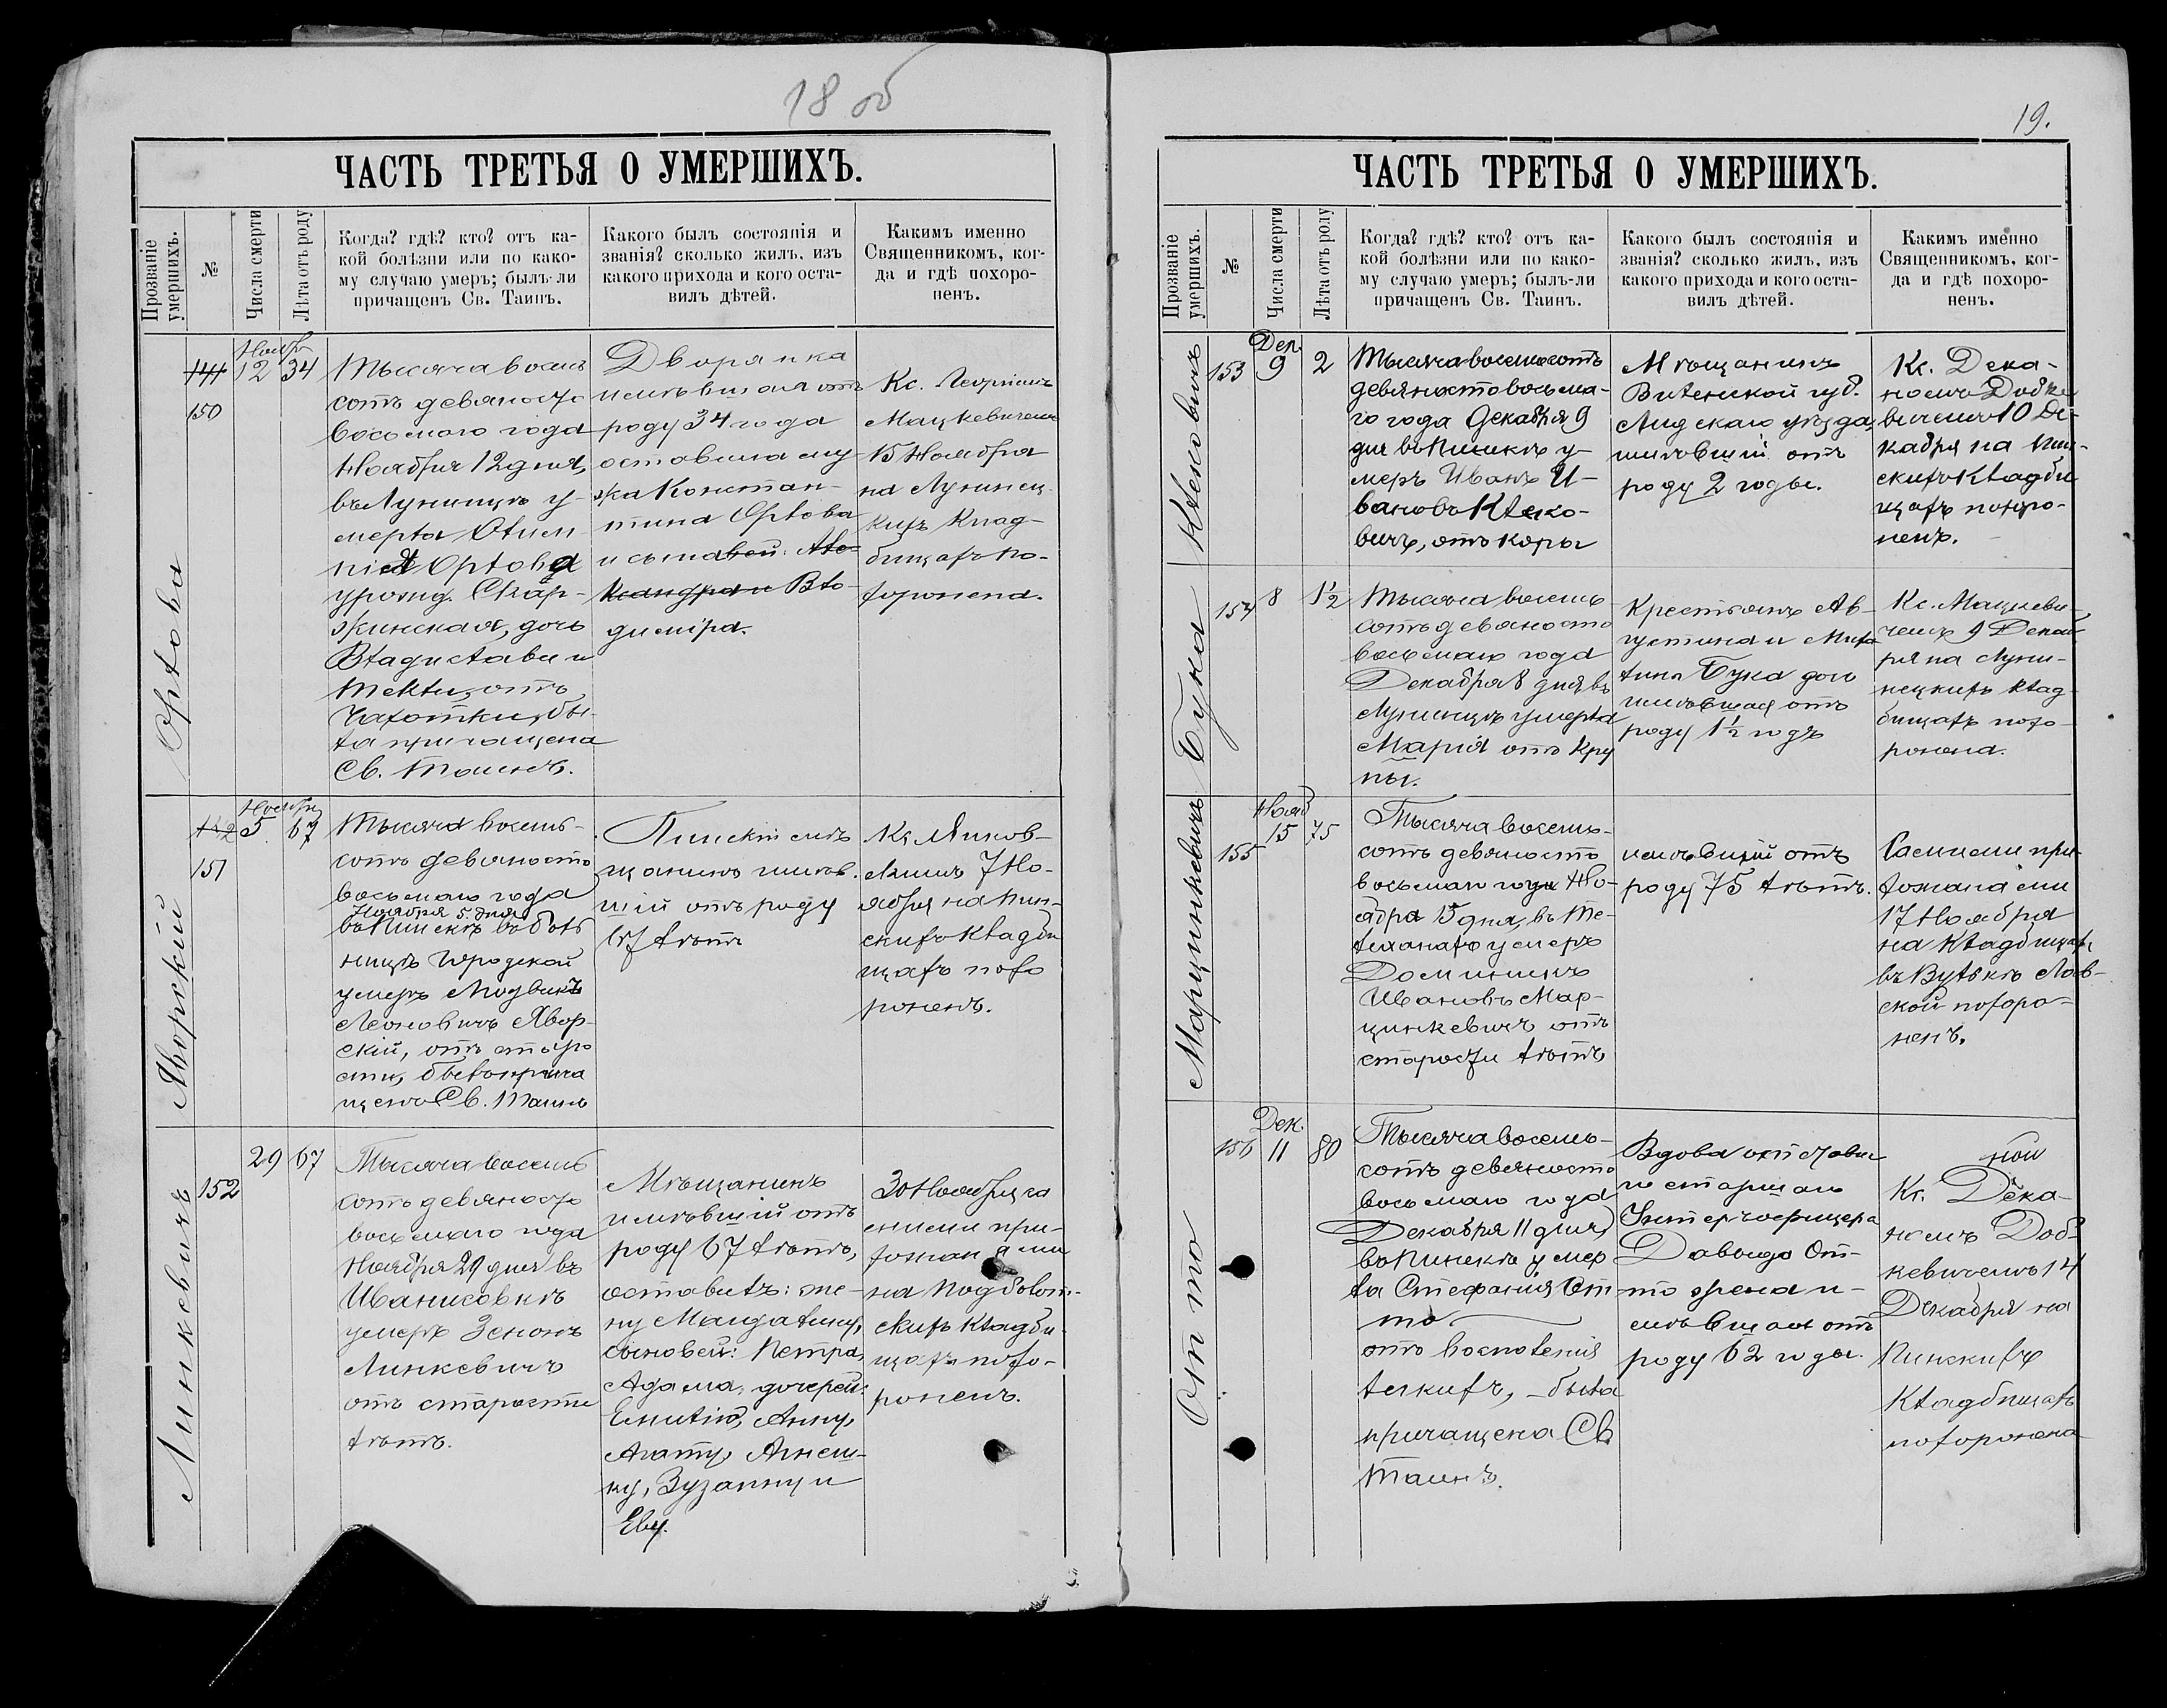 18 об
ЧАСТЬ ТРЕТЬЯ О УМЕРШИХЪ.
Прозваніе умершихъ.
№
Числа смерти
Лѣта отъ роду
Когда? гдѣ? кто? отъ ка-
кой болѣзни или по како-
му случаю умеръ; былъ-ли
причащенъ Св. Таинъ.
Какого былъ состоянія и
званія? сколько жилъ, изъ
какого прихода и кого оста-
вилъ дѣтей.
Какимъ именно
Священникомъ, ког-
да и гдѣ похоро-
ненъ.
Орлова
141
150
Ноябр
12
34
Тысяча восемь
сотъ девяносто
восьмого года
Ноября 12 дня,
въ Лунинцѣ у-
мерла
Орлова
урожд. Скар-
жинская, дочь
Владислава и
Теклы, отъ
чахотки, бы-
ла причащена
Св. Таинъ.
Дворянка
имѣвшая отъ
роду 34 года
оставила му-
жа Констан-
тина Орлова
и сыновей: Але-
ксандра и Вло-
димира.
Кс. Георгіемъ
Мацкевичемъ
15 Ноября
на Лунинец
кихъ клад-
бищахъ по-
хоронена.
Яворскій
142
151
Ноября
5
67
Тысяча восемь-
сотъ девяносто
восьмого года
Ноября 5 дня
въ Пинскѣ въ боль
ницѣ городской
умеръ Людвикъ
Леоновичъ Явор-
скій, отъ старо
сти, былъ прича
щенъ Св. Таинъ
Пинскій мѣ
щанинъ имѣв.
шій отъ роду
67 лѣтъ
Кс. Янков-
скимъ 7 Но-
ября на Пин-
скихъ кладби
щахъ похо
роненъ.
Линкевичъ
152
29
67
Тысяча восемь
сотъ девяносто
восьмого года
Ноября 29 дня въ
Иванисовкѣ
умеръ Зенонъ
Линкевичъ
отъ старости
лѣтъ.
Мѣщанинъ
имѣвшій отъ
роду 67 лѣтъ,
оставилъ: же-
ну Магдалину,
сыновей: Петра,
Адама, дочерей:
Емилію, Анну,
Агату, Агнеш-
ку, Зузанну и
Еву.
30 Ноября са
мими при-
хожанами
на Подболот-
скихъ кладби-
щахъ похо-
роненъ.
19.
ЧАСТЬ ТРЕТЬЯ О УМЕРШИХЪ.
Прозваніе умершихъ.
№
Числа смерти
Лѣта отъ роду
Когда? гдѣ? кто? отъ ка-
кой болѣзни или по како-
му случаю умеръ; былъ-ли
причащенъ Св. Таинъ.
Какого былъ состоянія и
званія? сколько жилъ, изъ
какого прихода и кого оста-
вилъ дѣтей.
Какимъ именно
Священникомъ, ког-
да и гдѣ похоро-
ненъ.
153
Дек
9
2
Тысяча восемьсотъ
девяносто восьма-
го года Декабря 9
дня въ Пинскѣ у-
меръ Иванъ И-
вановъ
отъ коры
Мѣщанинъ
Виленской губ.
Лидскаго уѣзда,
имѣвшій отъ
роду 2 годы.
Кс. Дека-
номъ Добке
вичемъ 10 Де-
кабря на Пин-
скихъ кладби
щахъ похоро-
ненъ.
Бука
154
8
1½
Тысяча восемь
сотъ девяносто
восьмаго года
Декабря 8 дня въ
Лунинцѣ умерла
Марія отъ кру
пы.
Крестьянъ Ав-
густина и Миха
лины Бука дочь
имѣвшая отъ
роду 1½ годъ
Кс. Мацкеви-
чемъ 9 Декаб
ря на Луни-
нецкихъ клад-
бищахъ похо-
ронена.
Марцинкевичъ
155
Нояб
15
75
Тысяча восемь-
сотъ девяносто
восьмаго года Но-
ября 15 дня, въ Те-
леханахъ умеръ
Доминикъ
Ивановъ Мар-
цинкевичъ отъ
старости лѣтъ
имѣвшій отъ
роду 75 лѣтъ.
Самими при-
хожанами
17 Ноября
на кладбищахъ
въ Вулькѣ Лав-
ской похоро-
ненъ.
Отто
156
Дек.
11
80
Тысяча восемь-
сотъ девяносто
восьмаго года
Декабря 11 дня,
въ Пинскѣ умер
ла Стефанія От
то
отъ воспаленія
легкихъ, была
причащена Св.
Таинъ.
Вдова отставна
го старшаго
Унтеръ-офицера
Давыда От-
то жена и-
мѣвшая отъ
роду 62 годы.
Кс. Дека-
номъ Доб-
кевичемъ 14
Декабря на
Пинскихъ
кладбищахъ
похоронена